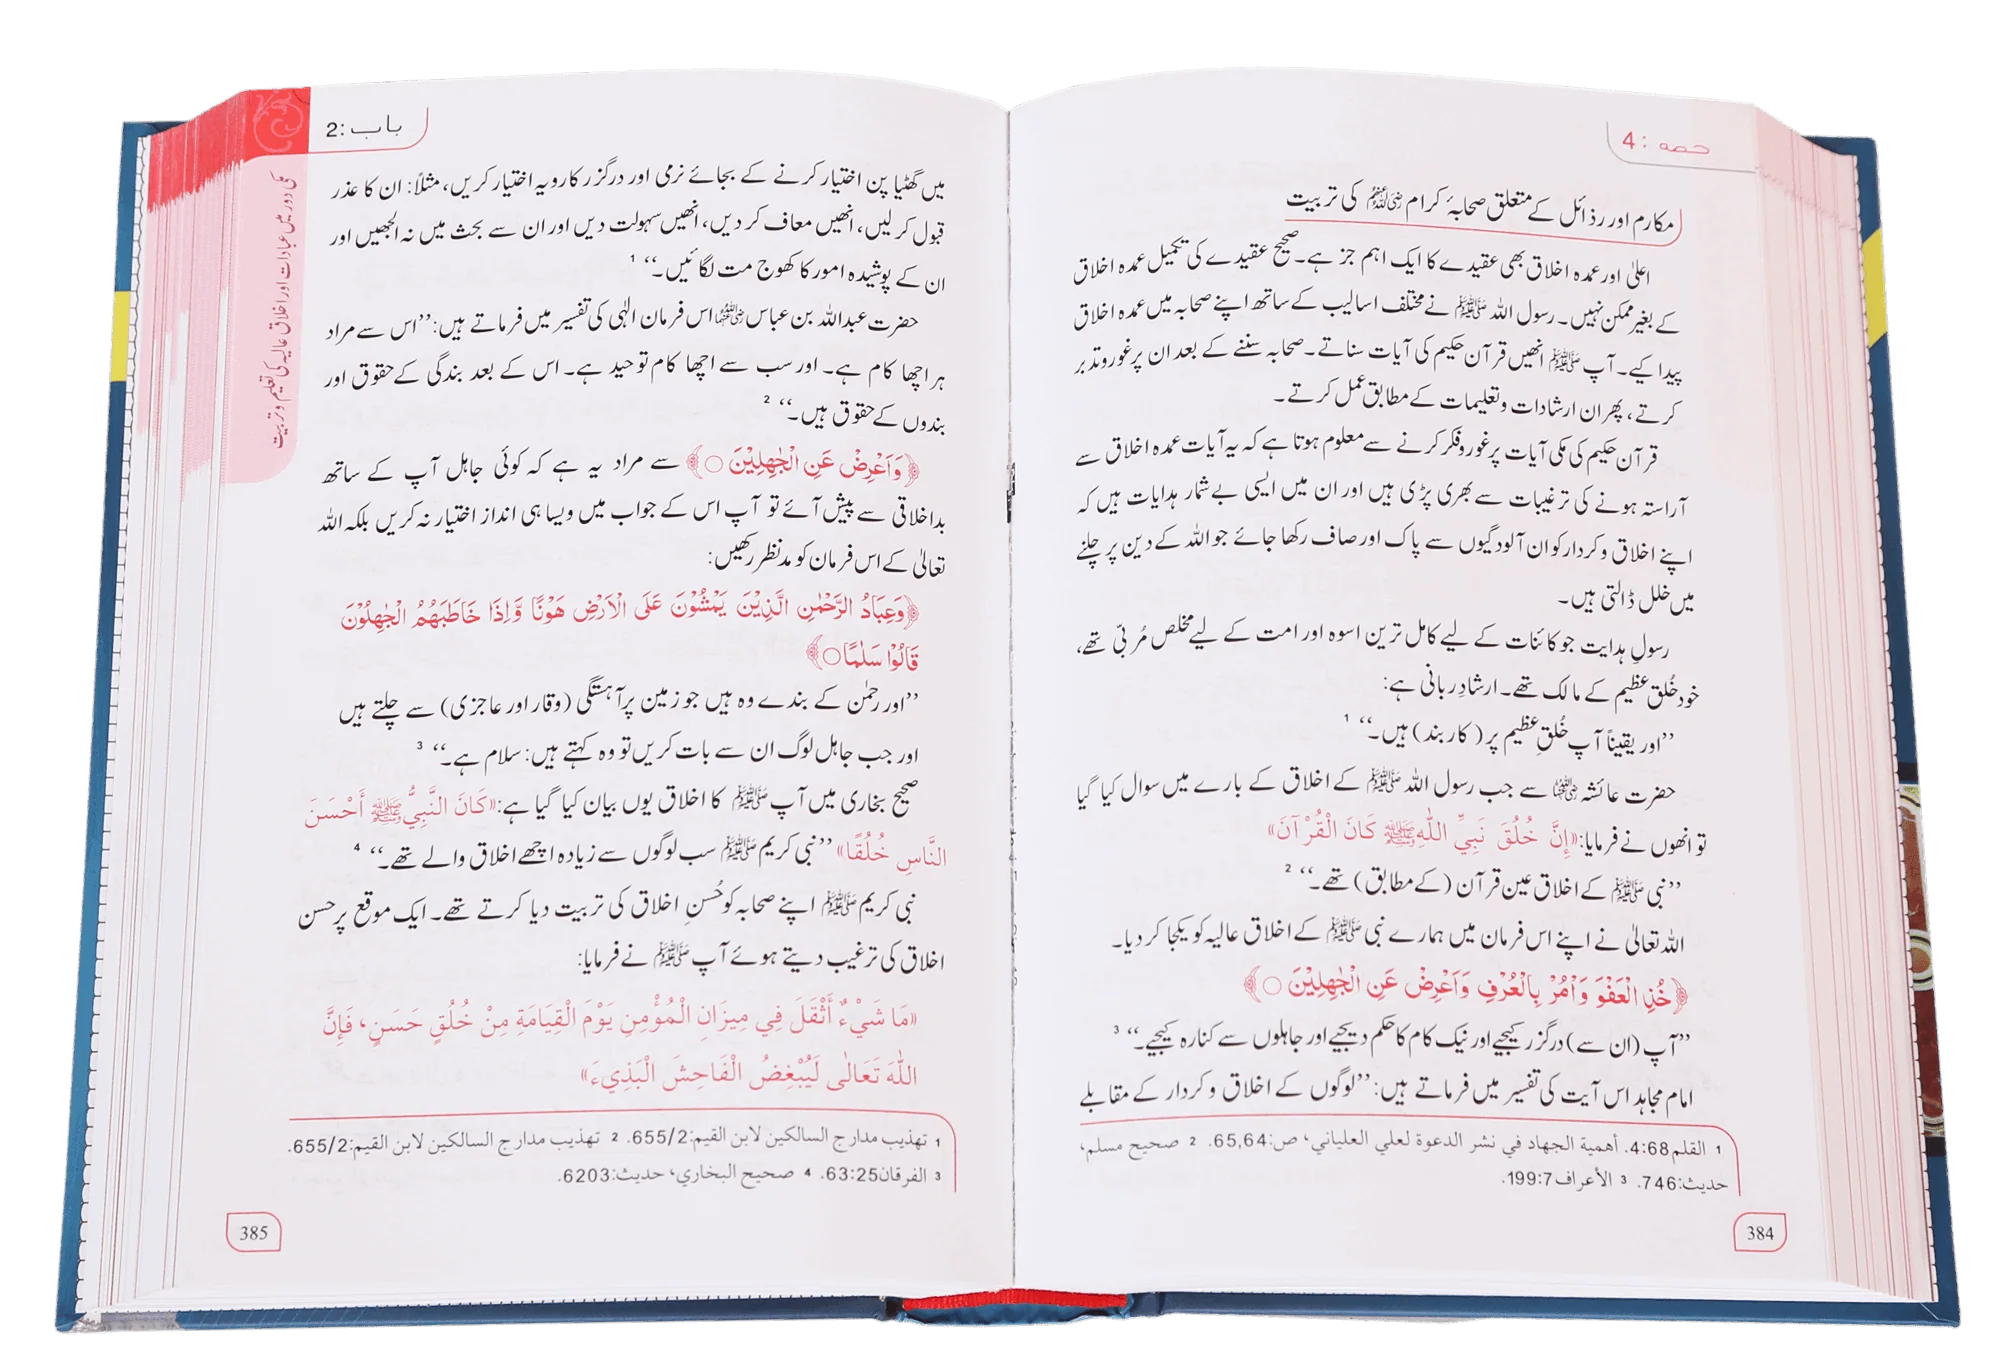 حصہ : 4
مکارم اور رذائل کے متعلق صحابۂ کرام رضی اللہ عنہم کی تربیت
اعلیٰ اور عمدہ اخلاق بھی عقیدے کا ایک اہم جز ہے۔ صحیح عقیدے کی تکمیل عمدہ اخلاق
کے بغیر ممکن نہیں۔ رسول اللہ ﷺ نے مختلف اسالیب کے ساتھ اپنے صحابہ میں عمدہ اخلاق
پیدا کیے۔ آپ ﷺ انھیں قرآن حکیم کی آیات سناتے۔ صحابہ سننے کے بعد ان پر غوروتدبر
کرتے، پھر ان ارشادات وتعلیمات کے مطابق عمل کرتے۔
قرآن حکیم کی مکی آیات پر غوروفکر کرنے سے معلوم ہوتا ہے کہ یہ آیات عمدہ اخلاق سے
آراستہ ہونے کی ترغیبات سے بھری پڑی ہیں اور ان میں ایسی بے شمار ہدایات ہیں کہ
اپنے اخلاق وکردار کو ان آلودگیوں سے پاک اور صاف رکھا جائے جو اللہ کے دین پر چلنے
میں خلل ڈالتی ہیں۔
رسولِ ہدایت جو کائنات کے لیے کامل ترین اسوہ اور امت کے لیے مخلص مُربّی تھے،
خود خُلق عظیم کے مالک تھے۔ ارشادِ ربانی ہے:
’’اور یقیناً آپ خُلقِ عظیم پر (کاربند) ہیں۔‘‘ 1
حضرت عائشہ رضی اللہ عنہا سے جب رسول اللہ ﷺ کے اخلاق کے بارے میں سوال کیا گیا
تو انھوں نے فرمایا: «إِنَّ خُلُقَ نَبِيِّ اللّٰهِ ﷺ كَانَ الْقُرْآنَ»
’’نبی ﷺ کے اخلاق عین قرآن (کے مطابق) تھے۔‘‘ 2
اللہ تعالیٰ نے اپنے اس فرمان میں ہمارے نبی ﷺ کے اخلاق عالیہ کو یکجا کر دیا۔
﴿خُذِ الْعَفْوَ وَاْمُرْ بِالْعُرْفِ وَاَعْرِضْ عَنِ الْجٰهِلِيْنَ ○﴾
’’آپ (ان سے) درگزر کیجیے اور نیک کام کا حکم دیجیے اور جاہلوں سے کنارہ کیجیے۔‘‘ 3
امام مجاہد اس آیت کی تفسیر میں فرماتے ہیں: ’’لوگوں کے اخلاق وکردار کے مقابلے
1 القلم 4:68. أهمية الجهاد في نشر الدعوة لعلي العلياني، ص:65,64. 2 صحيح مسلم،
حديث:746. 3 الأعراف 199:7.
384
باب :2
مکی دور میں عبادات اور اخلاق عالیہ کی تعلیم وتربیت
میں گھٹیا پن اختیار کرنے کے بجائے نرمی اور درگزر کا رویہ اختیار کریں، مثلاً: ان کا عذر
قبول کر لیں، انھیں معاف کر دیں، انھیں سہولت دیں اور ان سے بحث میں نہ الجھیں اور
ان کے پوشیدہ امور کا کھوج مت لگائیں۔‘‘ 1
حضرت عبداللہ بن عباس رضی اللہ عنہما اس فرمان الٰہی کی تفسیر میں فرماتے ہیں: ’’اس سے مراد
ہر اچھا کام ہے۔ اور سب سے اچھا کام توحید ہے۔ اس کے بعد بندگی کے حقوق اور
بندوں کے حقوق ہیں۔‘‘ 2
﴿وَاَعْرِضْ عَنِ الْجٰهِلِيْنَ ○﴾ سے مراد یہ ہے کہ کوئی جاہل آپ کے ساتھ
بداخلاقی سے پیش آئے تو آپ اس کے جواب میں ویسا ہی انداز اختیار نہ کریں بلکہ اللہ
تعالیٰ کے اس فرمان کو مدنظر رکھیں:
﴿وَعِبَادُ الرَّحْمٰنِ الَّذِيْنَ يَمْشُوْنَ عَلَى الْاَرْضِ هَوْنًا وَّاِذَا خَاطَبَهُمُ الْجٰهِلُوْنَ
قَالُوْا سَلٰمًا○﴾
’’اور رحمٰن کے بندے وہ ہیں جو زمین پر آہستگی (وقار اور عاجزی) سے چلتے ہیں
اور جب جاہل لوگ ان سے بات کریں تو وہ کہتے ہیں: سلام ہے۔‘‘ 3
صحیح بخاری میں آپ ﷺ کا اخلاق یوں بیان کیا گیا ہے: «كَانَ النَّبِيُّ ﷺ أَحْسَنَ
النَّاسِ خُلُقًا» ’’نبی کریم ﷺ سب لوگوں سے زیادہ اچھے اخلاق والے تھے۔‘‘ 4
نبی کریم ﷺ اپنے صحابہ کو حُسنِ اخلاق کی تربیت دیا کرتے تھے۔ ایک موقع پر حسن
اخلاق کی ترغیب دیتے ہوئے آپ ﷺ نے فرمایا:
«مَا شَيْءٌ أَثْقَلَ فِي مِيزَانِ الْمُؤْمِنِ يَوْمَ الْقِيَامَةِ مِنْ خُلُقٍ حَسَنٍ، فَإِنَّ
اللّٰهَ تَعَالٰى لَيُبْغِضُ الْفَاحِشَ الْبَذِيءَ»
1 تهذيب مدارج السالكين لابن القيم:655/2. 2 تهذيب مدارج السالكين لابن القيم:655/2.
3 الفرقان 63:25. 4 صحيح البخاري، حديث:6203.
385